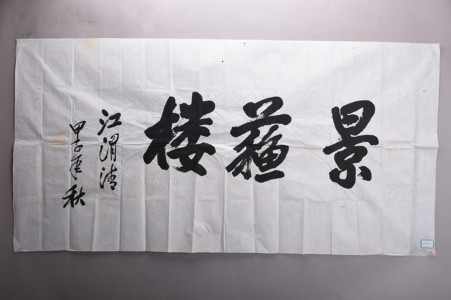 景蘇楼
江渭清
甲子年秋